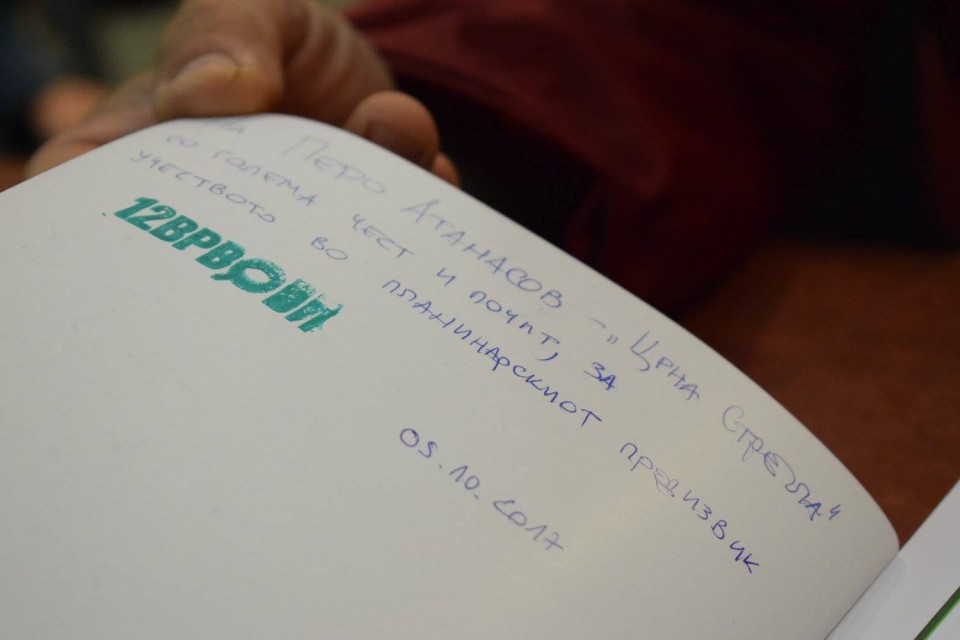 На Петро Атанасов - „Црна Стрела“
со голема чест и почит, за
учеството во планинарскиот предизвик
12ВРВОВИ
05.10.2017